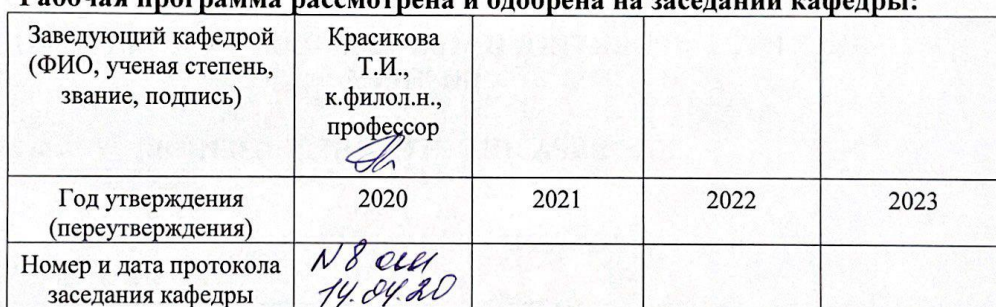 Рабочая программа рассмотрена и одобрена на заседании кафедры:
Заведующий кафедрой
(ФИО, ученая степень,
звание, подпись)
Красикова
Т.И.,
к.филол.н.,
профессор
Год утверждения
(переутверждения)
2020
2021
2022
2023
Номер и дата протокола
заседания кафедры
N 8 от
14.04.20